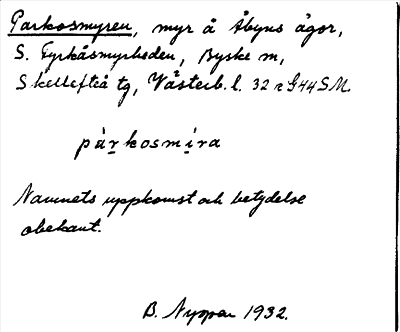 Parkosmyren, myr å Åbyns ägor,
S. Fyrkåsmyrheden, Byske sn,
Skellefteå tg, Västerb. l. 32 r G44 SM.
pàrkosmira
Namnets uppkomst och betydelse
obekant.
B. Nyman 1932.